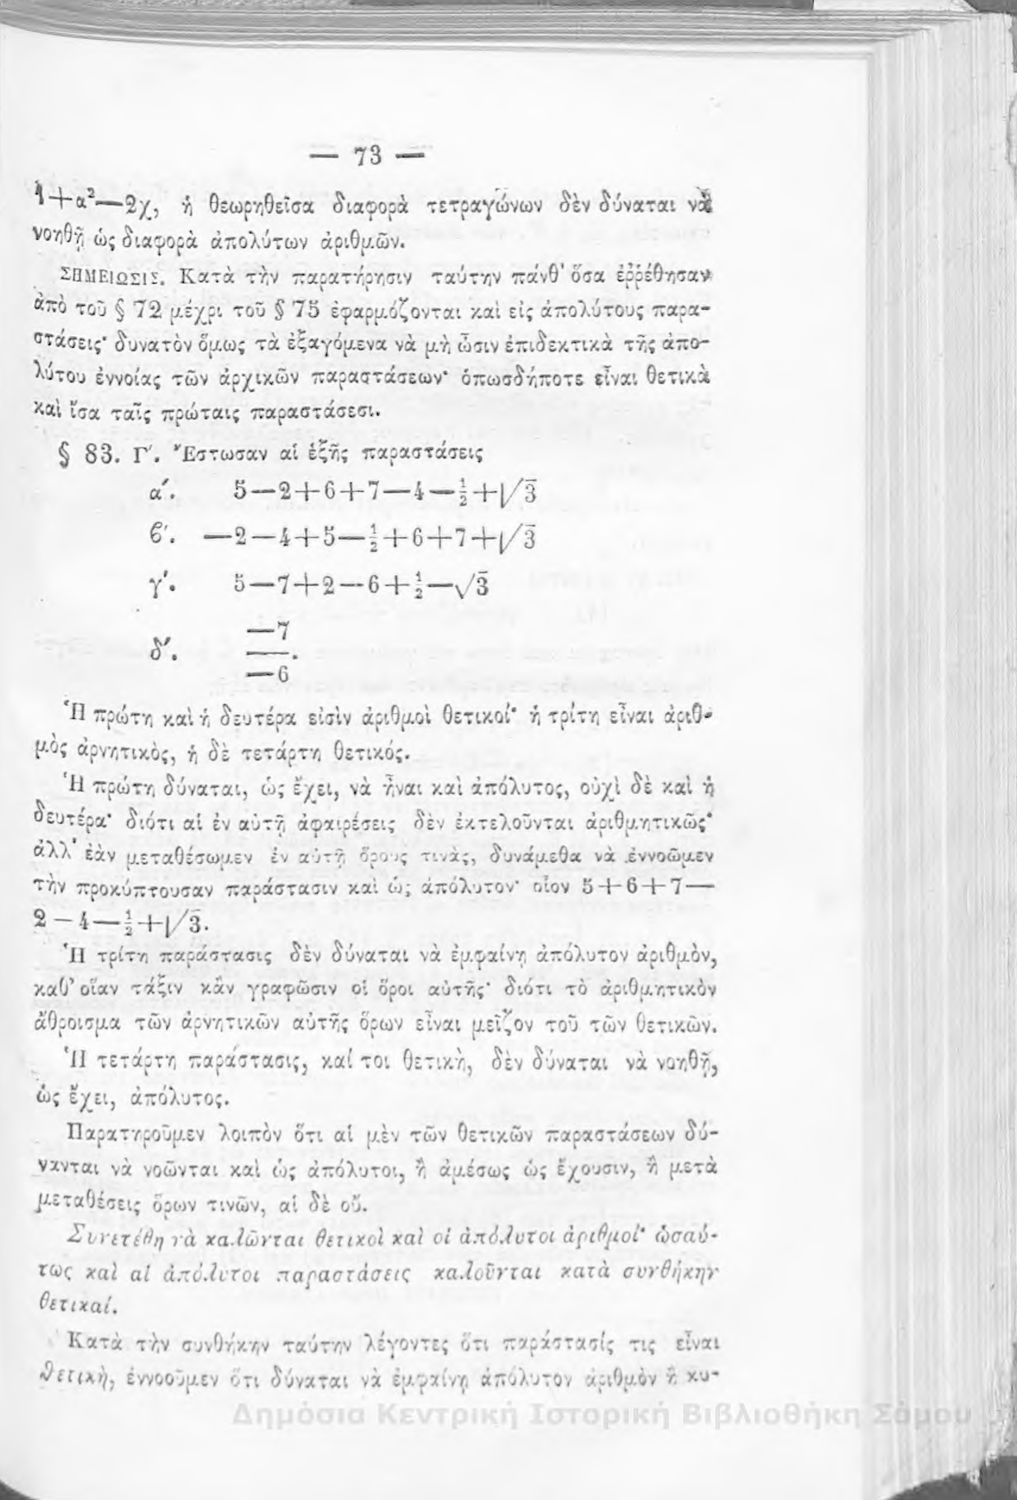 — 73 —
1+α²—2χ, ἡ θεωρηθεῖσα διαφορὰ τετραγώνων δὲν δύναται νὰ
νοηθῇ ὡς διαφορὰ ἀπολύτων ἀριθμῶν.
ΣΗΜΕΙΩΣΙΣ. Κατὰ τὴν παρατήρησιν ταύτην πάνθ' ὅσα ἐῤῥέθησαν
ἀπὸ τοῦ § 72 μέχρι τοῦ § 75 ἐφαρμόζονται καὶ εἰς ἀπολύτους παρα-
στάσεις· δυνατὸν ὅμως τὰ ἐξαγόμενα νὰ μὴ ὦσιν ἐπιδεκτικὰ τῆς ἀπο-
λύτου ἐννοίας τῶν ἀρχικῶν παραστάσεων· ὁπωσδήποτε εἶναι θετικὰ
καὶ ἴσα ταῖς πρώταις παραστάσεσι.
§ 83. Γ'. Ἔστωσαν αἱ ἑξῆς παραστάσεις
α'. 5—2+6+7—4—½+√3
ϐ'. —2—4+5—½+6+7+√3
γ'. 5—7+2—6+½—√3
δ'. —7/—6.
Ἡ πρώτη καὶ ἡ δευτέρα εἰσὶν ἀριθμοὶ θετικοί· ἡ τρίτη εἶναι ἀριθ-
μὸς ἀρνητικὸς, ἡ δὲ τετάρτη θετικός.
Ἡ πρώτη δύναται, ὡς ἔχει, νὰ ἦναι καὶ ἀπόλυτος, οὐχὶ δὲ καὶ ἡ
δευτέρα· διότι αἱ ἐν αὐτῇ ἀφαιρέσεις δὲν ἐκτελοῦνται ἀριθμητικῶς·
ἀλλ' ἐὰν μεταθέσωμεν ἐν αὐτῇ ὅρους τινὰς, δυνάμεθα νὰ ἐννοῶμεν
τὴν προκύπτουσαν παράστασιν καὶ ὡς ἀπόλυτον· οἷον 5+6+7—
2—4—½+√3.
Ἡ τρίτη παράστασις δὲν δύναται νὰ ἐμφαίνῃ ἀπόλυτον ἀριθμὸν,
καθ' οἵαν τάξιν κἂν γραφῶσιν οἱ ὅροι αὐτῆς· διότι τὸ ἀριθμητικὸν
ἄθροισμα τῶν ἀρνητικῶν αὐτῆς ὅρων εἶναι μεῖζον τοῦ τῶν θετικῶν.
Ἡ τετάρτη παράστασις, καί τοι θετικὴ, δὲν δύναται νὰ νοηθῇ,
ὡς ἔχει, ἀπόλυτος.
Παρατηροῦμεν λοιπὸν ὅτι αἱ μὲν τῶν θετικῶν παραστάσεων δύ-
νανται νὰ νοῶνται καὶ ὡς ἀπόλυτοι, ἢ ἀμέσως ὡς ἔχουσιν, ἢ μετὰ
μεταθέσεις ὅρων τινῶν, αἱ δὲ οὔ.
Συνετέθη νὰ καλῶνται θετικοὶ καὶ οἱ ἀπόλυτοι ἀριθμοί· ὡσαύ-
τως καὶ αἱ ἀπόλυτοι παραστάσεις καλοῦνται κατὰ συνθήκην
θετικαί.
Κατὰ τὴν συνθήκην ταύτην λέγοντες ὅτι παράστασίς τις εἶναι
θετικὴ, ἐννοοῦμεν ὅτι δύναται νὰ ἐμφαίνῃ ἀπόλυτον ἀριθμὸν ἢ κυ-
Δημόσια Κεντρική Ιστορική Βιβλιοθήκη Σάμου